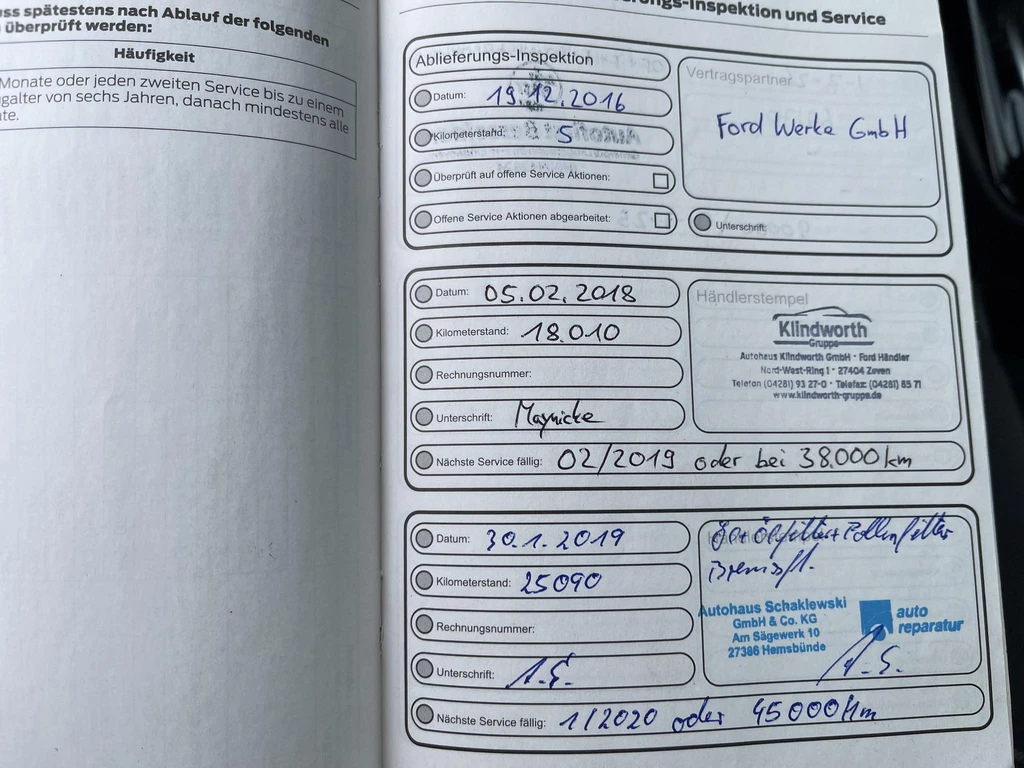 ss spätestens nach Ablauf der folgenden
überprüft werden:
Häufigkeit
Monate oder jeden zweiten Service bis zu einem
galter von sechs Jahren, danach mindestens alle
te.
-Inspektion und Service
Ablieferungs-Inspektion
Datum: 19.12.2016
Kilometerstand: 5
Überprüft auf offene Service Aktionen:
Offene Service Aktionen abgearbeitet:
Vertragspartner
Ford Werke GmbH
Unterschrift:
Datum: 05.02.2018
Kilometerstand: 18.010
Rechnungsnummer:
Unterschrift: Maynicke
Händlerstempel
Klindworth
Gruppe
Autohaus Klindworth GmbH · Ford Händler
Nord-West-Ring 1 · 27404 Zeven
Telefon (04281) 93 27-0 · Telefax (04281) 85 71
www.klindworth-gruppe.de
Nächste Service fällig: 02/2019 oder bei 38.000 km
Datum: 30.1.2019
Kilometerstand: 25090
Rechnungsnummer:
Unterschrift:
Öl+Ölfilter+Pollenfilter
Bremsfl.
Autohaus Schaklewski
GmbH & Co. KG
Am Sägewerk 10
27386 Hemsbünde
auto
reparatur
Nächste Service fällig: 1/2020 oder 45000km